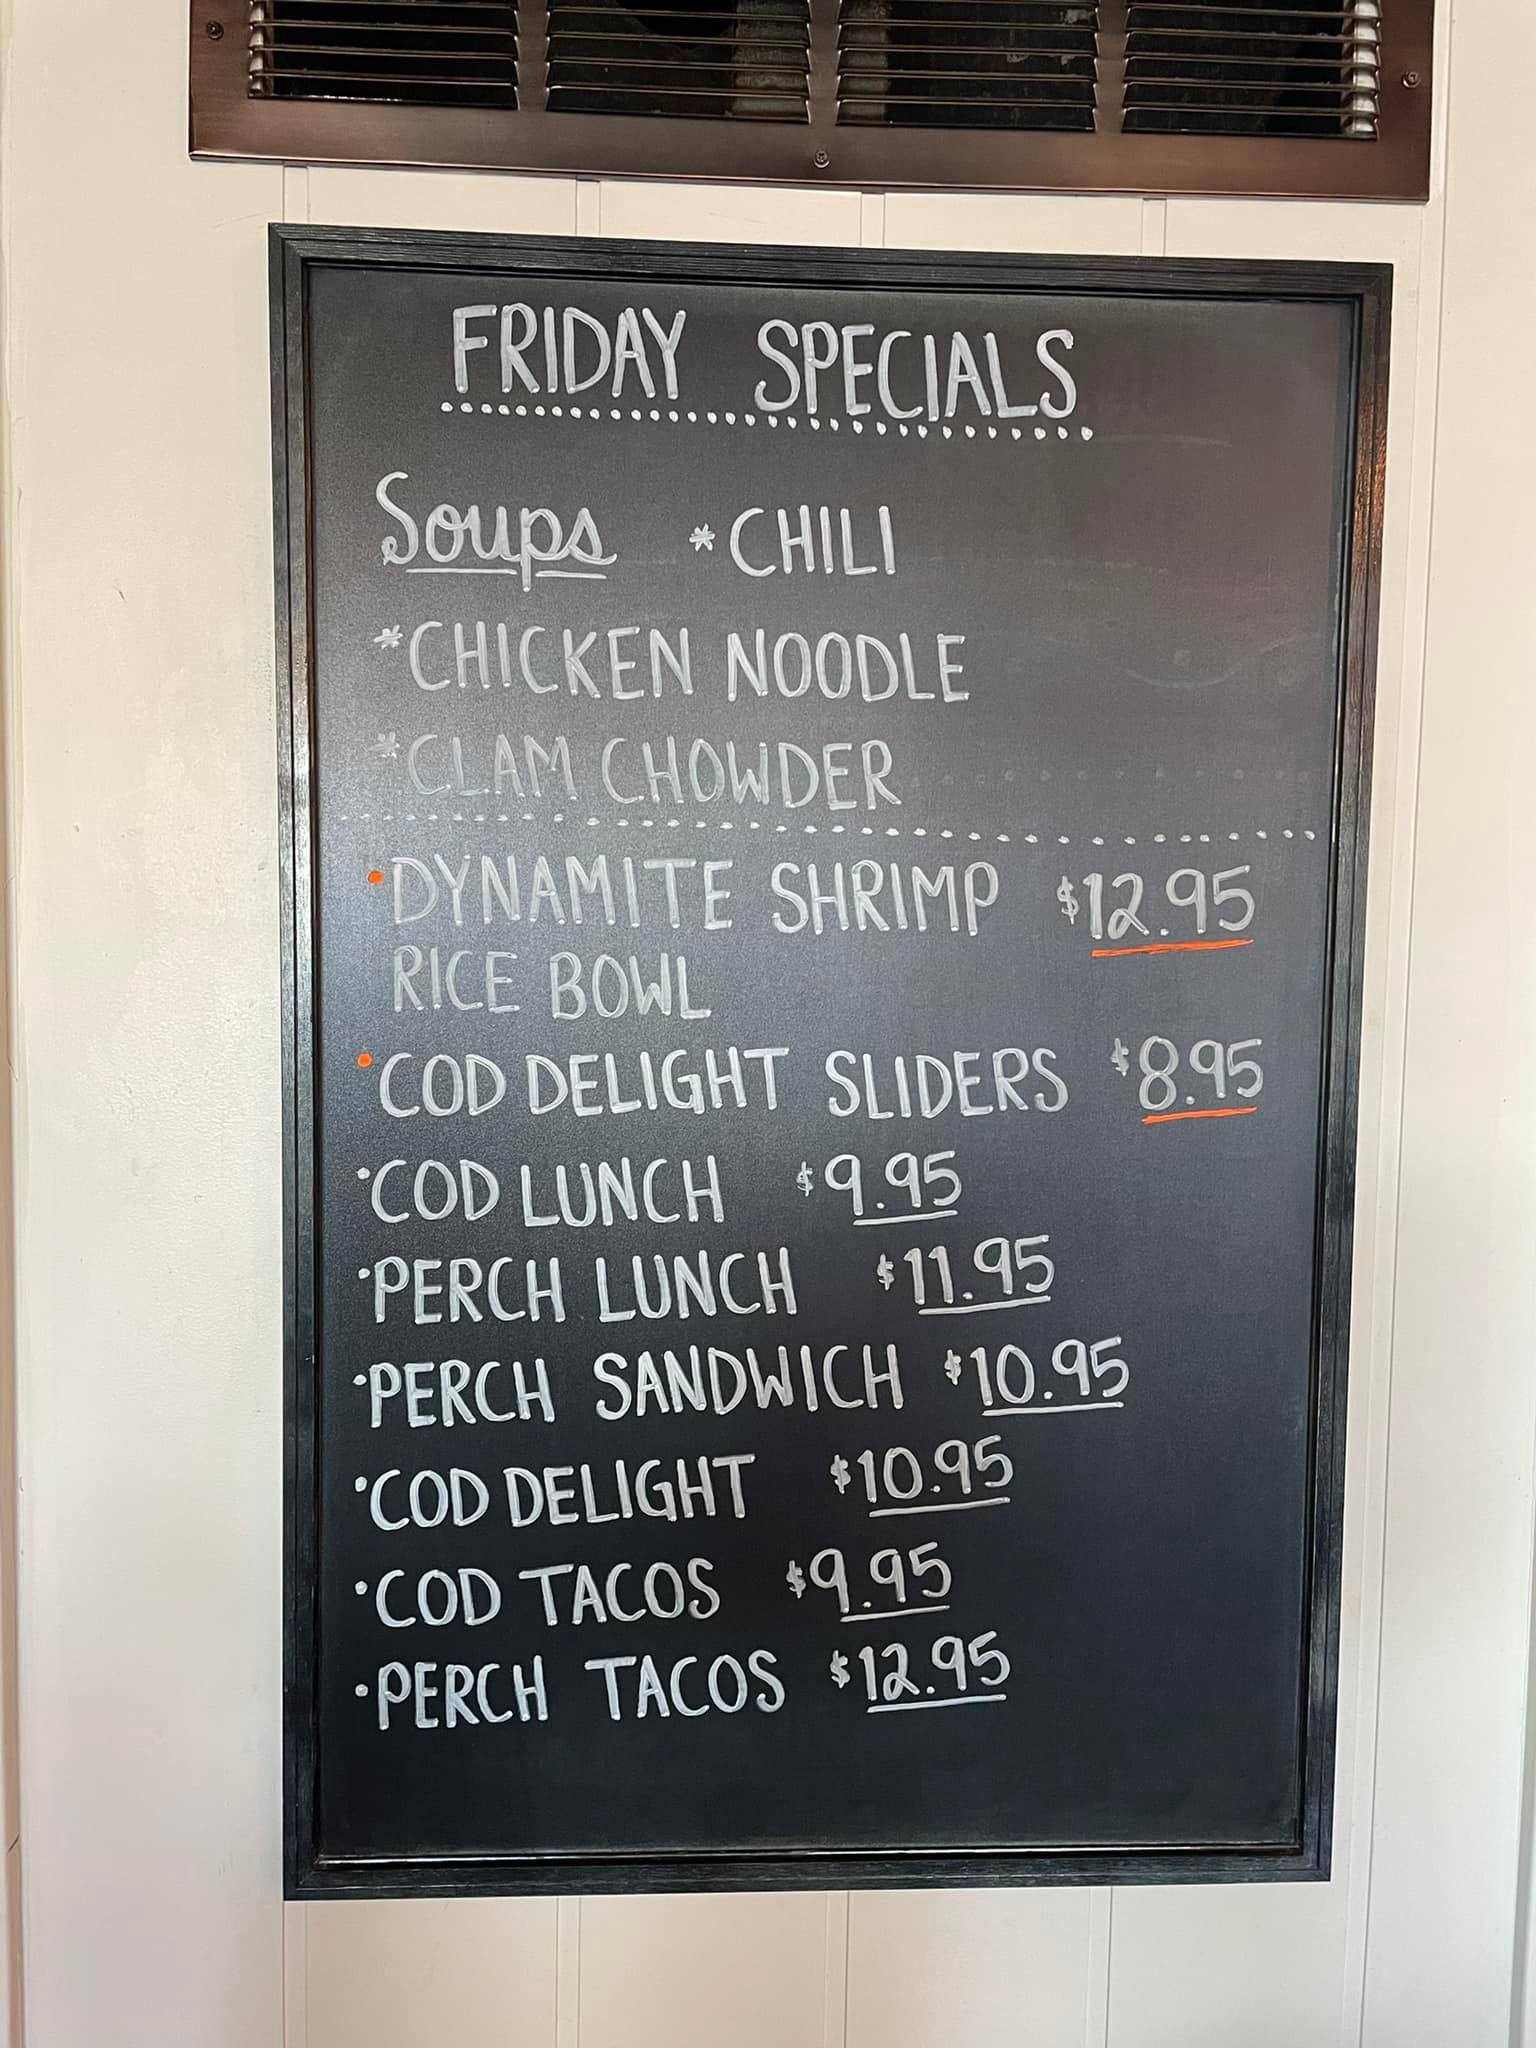 FRIDAY SPECIALS
Soups *CHILI
*CHICKEN NOODLE
*CLAM CHOWDER
•DYNAMITE SHRIMP $12.95
RICE BOWL
•COD DELIGHT SLIDERS $8.95
•COD LUNCH $9.95
•PERCH LUNCH $11.95
•PERCH SANDWICH $10.95
•COD DELIGHT $10.95
•COD TACOS $9.95
•PERCH TACOS $12.95